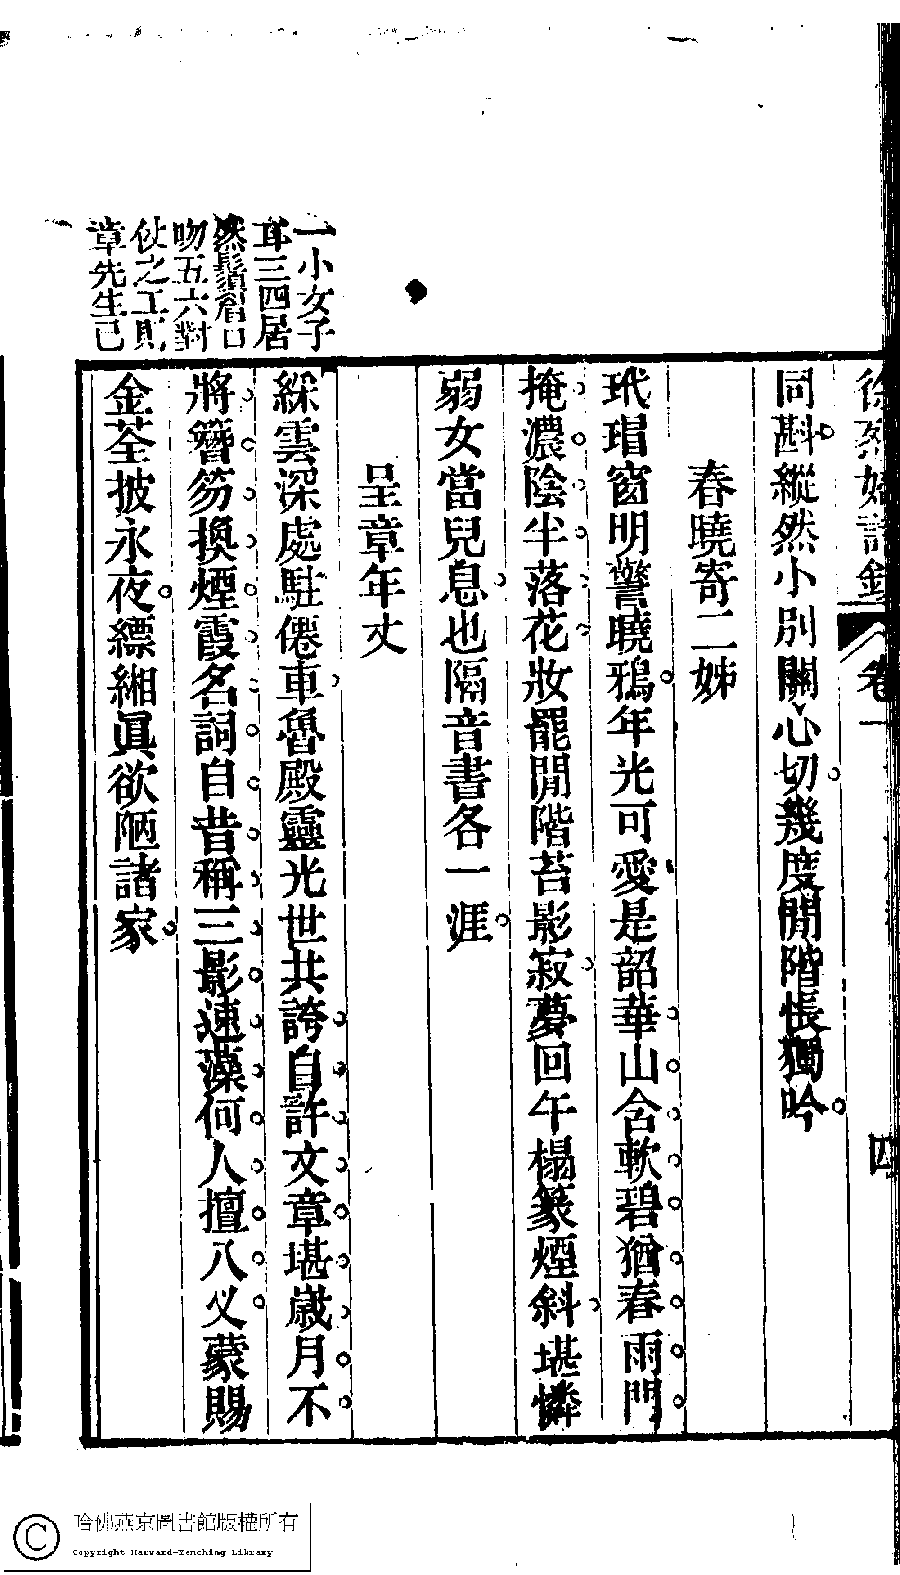 徐烈婦詩鈔 卷一 四
同斟縱然小別關心切幾度閒階悵獨吟
春曉寄二姊
玳瑁窗明警曉鴉年光可愛是韶華山含軟碧猶春雨門
掩濃陰半落花妝罷閒階苔影寂夢回午榻篆煙斜堪憐
弱女當兒息也隔音書各一涯
呈章年丈
綵雲深處駐僊車魯殿靈光世共誇自許文章堪歲月不
將簪笏換煙霞名詞自昔稱三影速藻何人擅八义蒙賜
金荃披永夜縹緗眞欲陋諸家
一小女子
耳三四居
然鬚眉口
吻五六對
仗之工則
章先生已
哈佛燕京圖書館版權所有
Copyright Harvard-Yenching Library